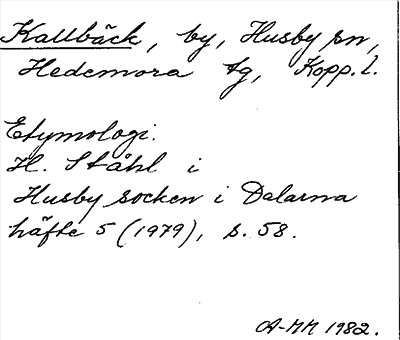 Kallbäck, by, Husby sn,
Hedemora tg, Kopp. l.
Etymologi:
H. Ståhl i
Husby socken i Dalarna
häfte 5 (1979), s. 58.
A-MM 1982.